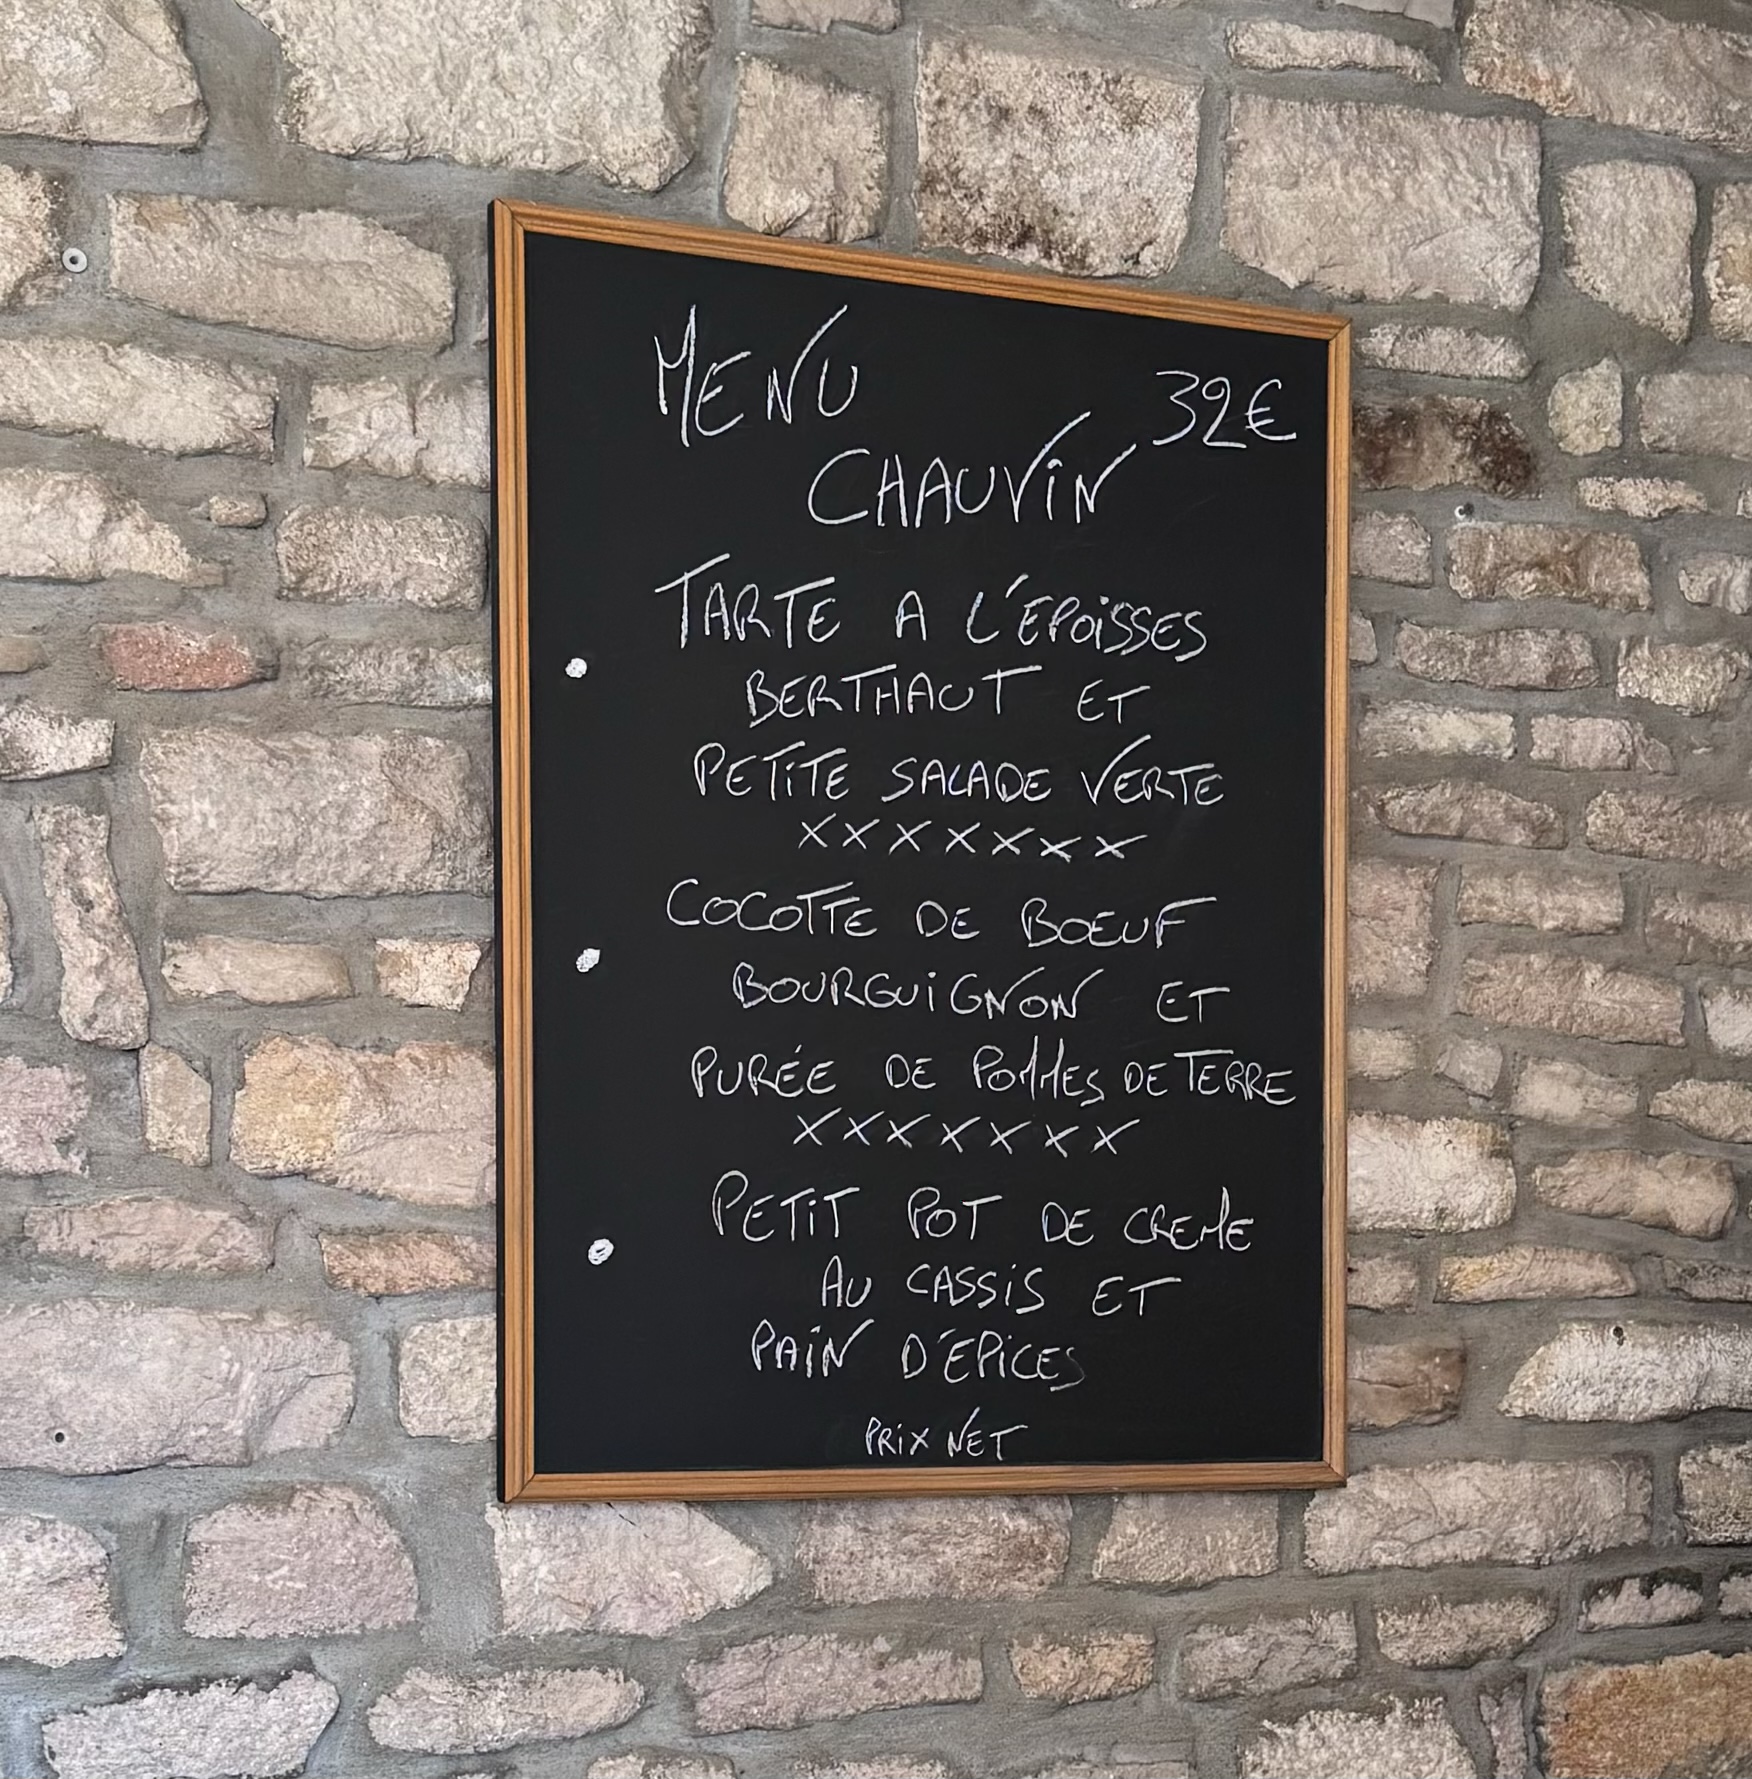 MENU
32€
CHAUViN
TARTE A L'EPOiSSES
BERTHAUT ET
PETiTE SALADE VERTE
XXXXXXX
COCOTTE DE BOEUF
BOURGUiGNON ET
PURÉE DE POMMES DE TERRE
XXXXXXX
PETiT POT DE CREME
AU CASSiS ET
PAiN D'EPiCES
PRiX NET